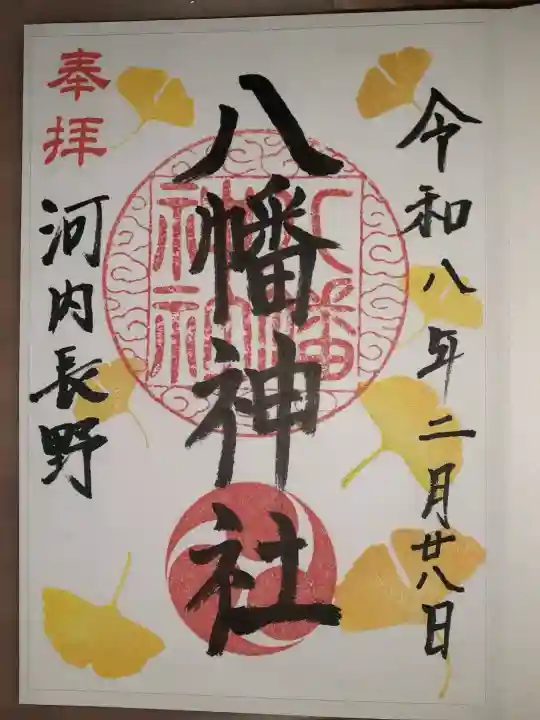 令和八年二月廿八日
八幡神社
八幡神社
奉拝
河内長野